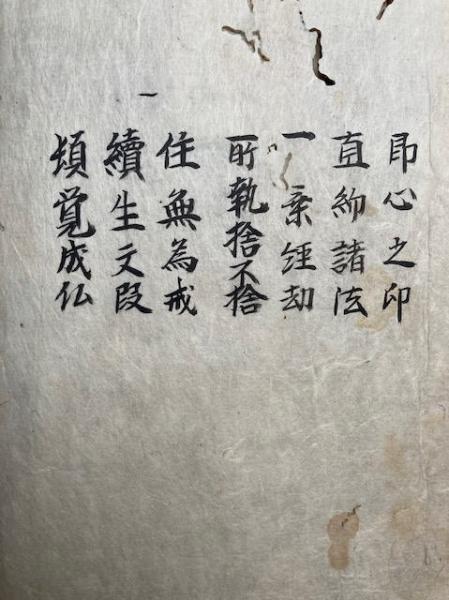 即心之印
直約諸法
一乗経劫
所執捨不捨
住無為戒
一
續生文段
頓覚成仏